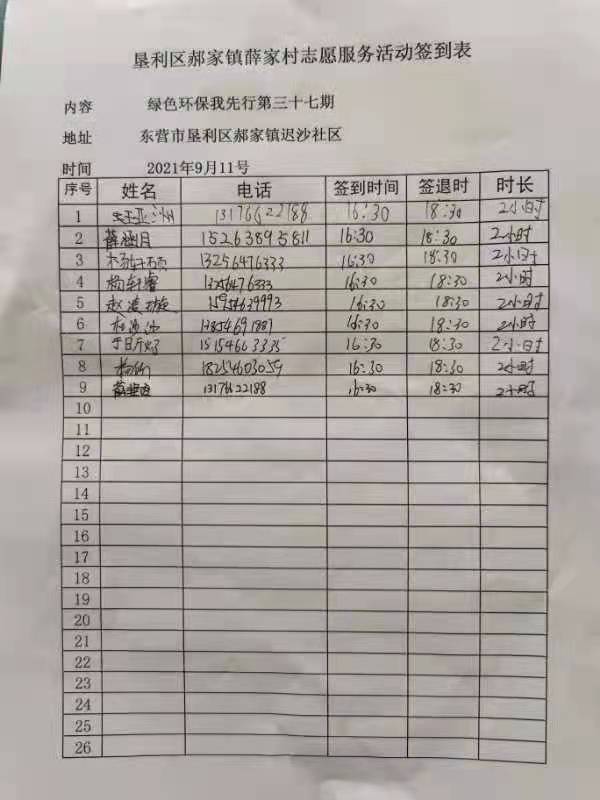 垦利区郝家镇薛家村志愿服务活动签到表
内容 绿色环保我先行第三十七期
地址 东营市垦利区郝家镇迟沙社区
时间 2021年9月11号
序号 姓名 电话 签到时间 签退时 时长
1 13176622188 16:30 18:30 2小时
2 薛涵月 15263895811 16:30 18:30 2小时
3 13256476333 16:30 18:30 2小时
4 13256476333 16:30 18:30 2小时
5 16:30 18:30 2小时
6 16:30 18:30 2小时
7 16:30 18:30 2小时
8 18254603059 16:30 18:30 2小时
9 13176622188 16:30 18:30 2小时
10
11
12
13
14
15
16
17
18
19
20
21
22
23
24
25
26